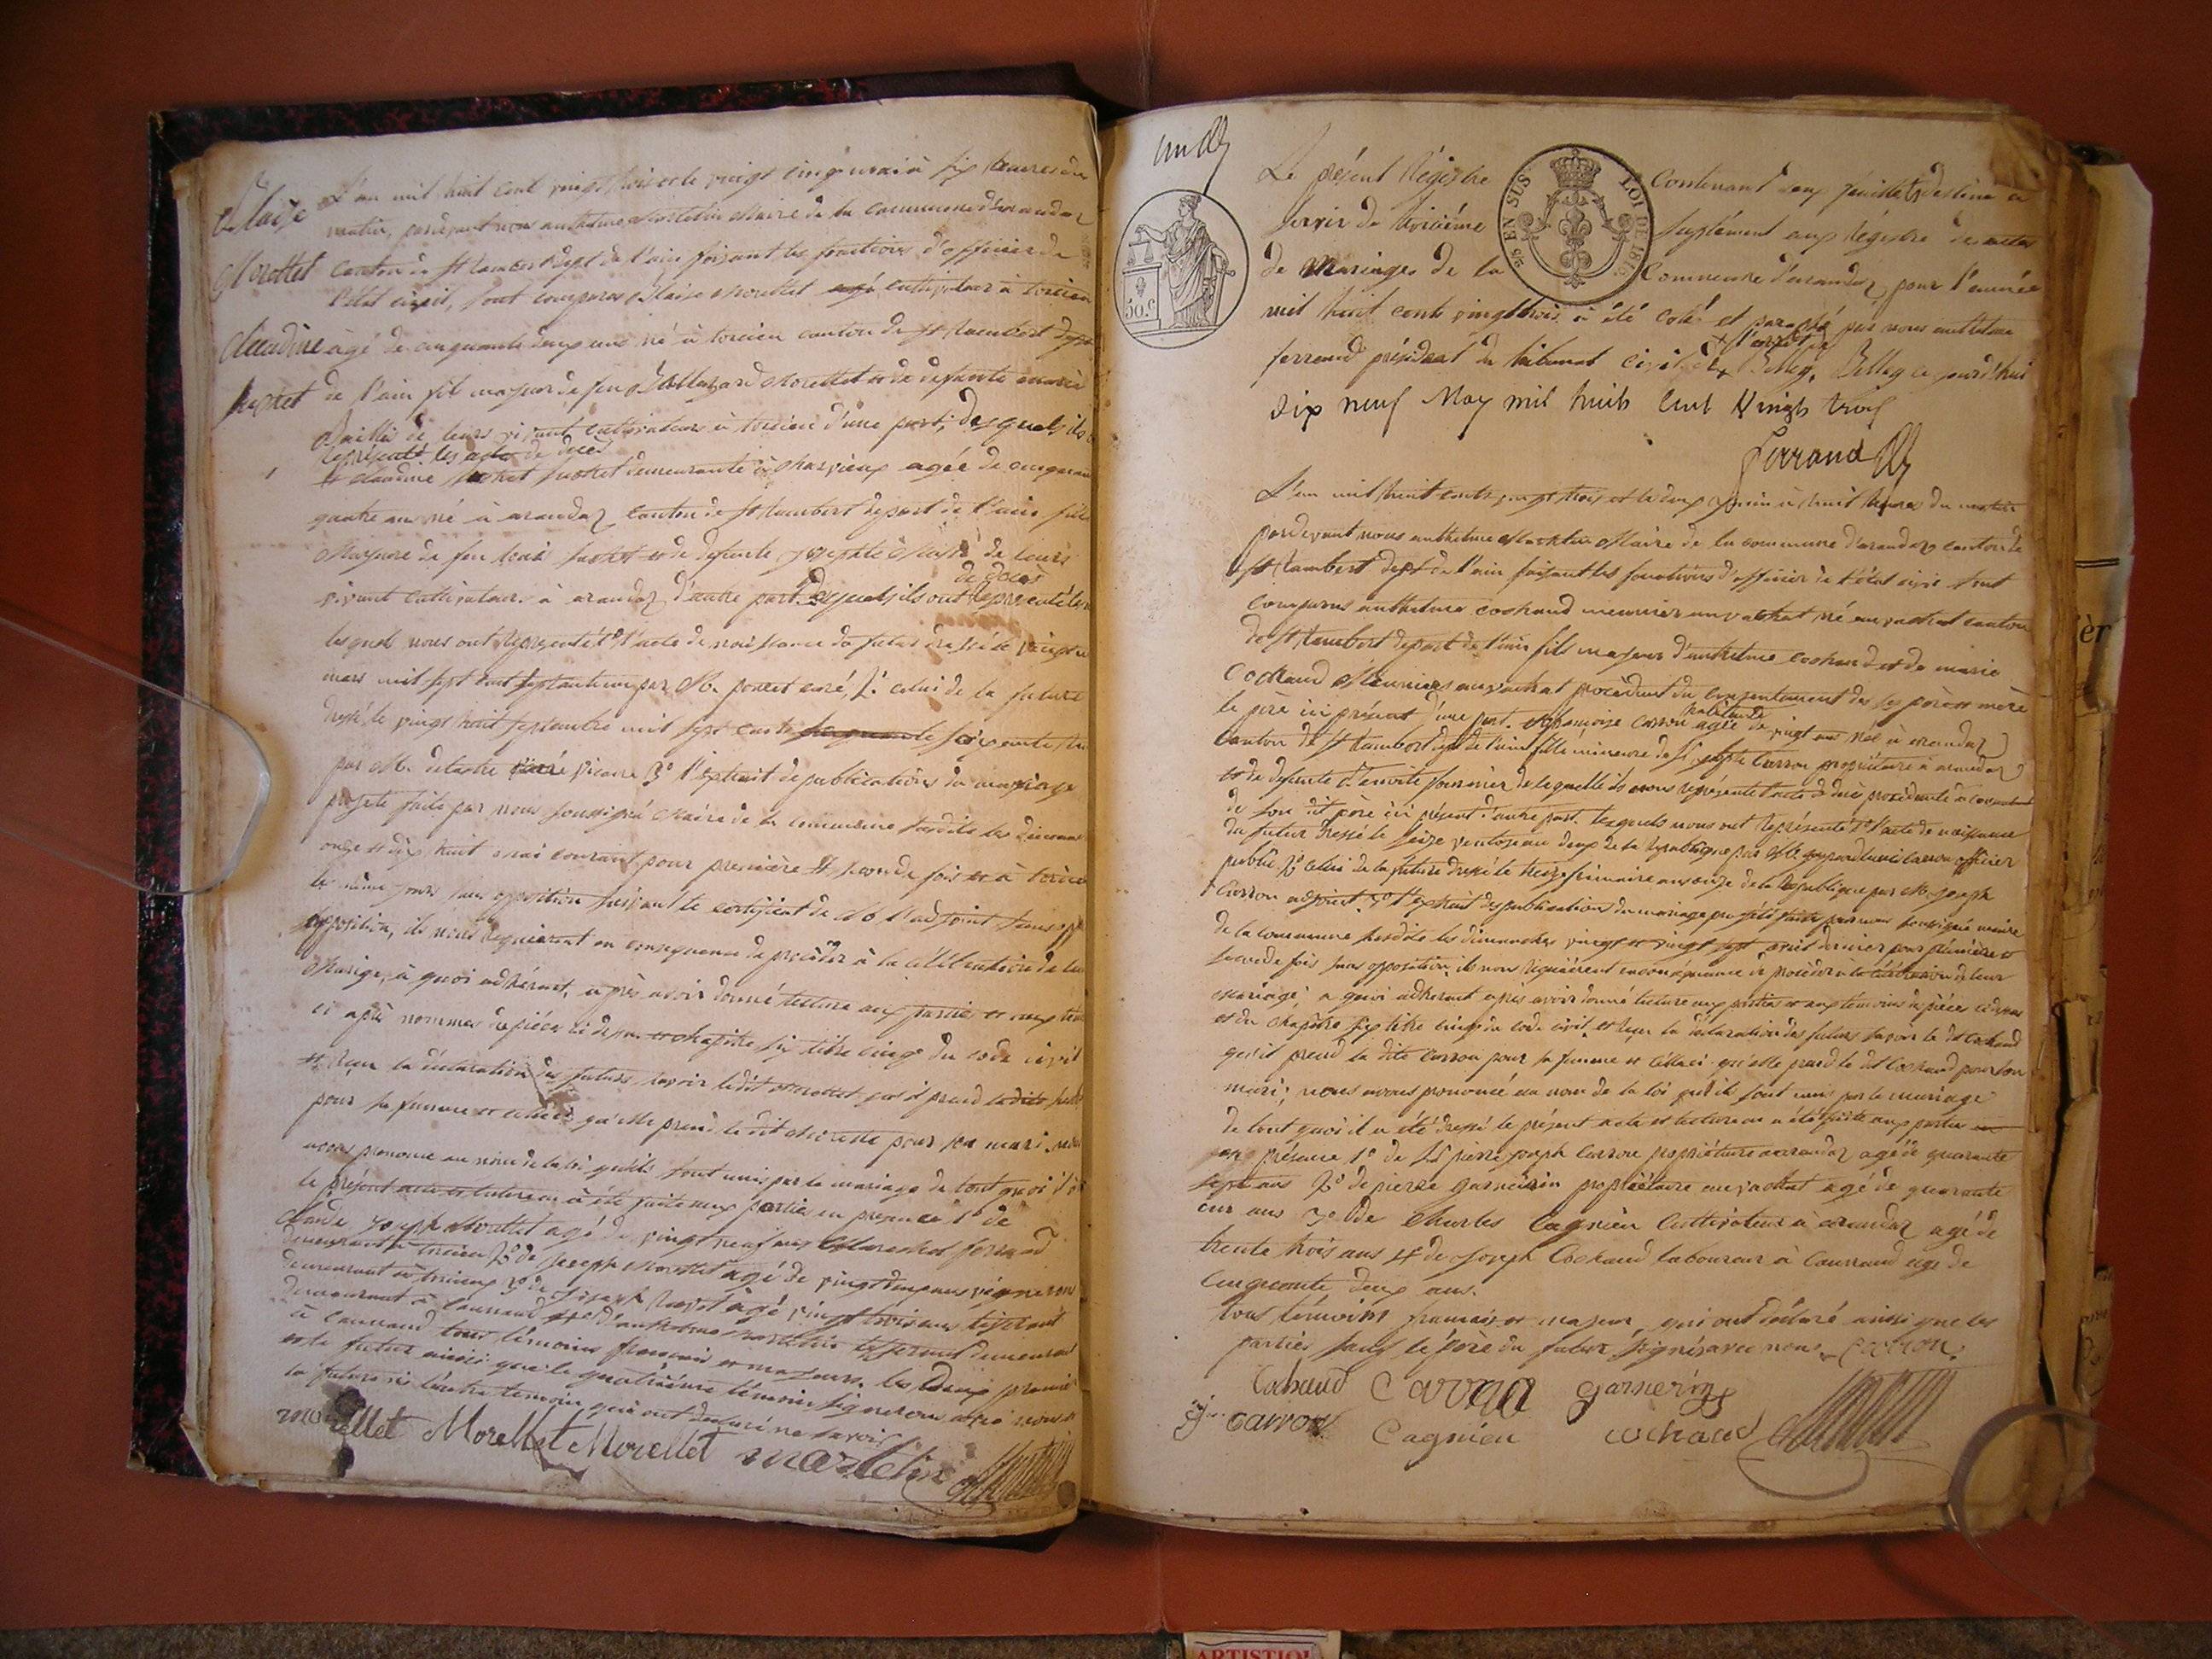 Blaise
Morettet
Claudine
suchet
L'an mil huit cent vingt trois et le vingt cinq mai à six heures du
matin, pardevant nous anthelme Martelin Maire de la Commune d'arandaz
Canton de St Rambert dept de l'ain faisant les fonctions d'officier de
l'état civil, sont comparus Blaise Morettet cultivateur à torcieu
âgé de cinquante deux ans né à torcieu canton de St Rambert dept
de l'ain fils majeur de feu Morettet et de defunte marie
de leurs vivant cultivateurs à torcieu d'une part, desquels ils
représenté les actes de décés
et claudine suchet demeurante à agée de cinquante
quatre ans né à arandaz canton de St Rambert depart de l'ain fille
Majeure de feu suchet et de defunte de leurs
de décés
vivant cultivateur à arandaz d'autre part desquels ils ont représenté
lesquels nous ont représenté 1° l'acte de naissance du futur dressé le vingt
mars mil sept cent septante un par Mr. poncet curé, 2° celui de la future
dressé le vingt huit septembre mil sept cents soixante
par Mr. delastre vicaire 3° l'extrait de publications du mariage
projeté faite par nous soussigné Maire de la commune susdite les dimanches
onze et dix huit mai courant pour première et seconde fois et à torcieu
les même jours sans opposition suivant le certificat de Mr l'adjoint sans
opposition, ils nous requierent en consequence de procèder à la célébration de leur
Mariage, à quoi adhérant, après avoir donné lecture aux parties et aux
ci après nommés des pièces ci dessus et chapitre six titre cinq du code civil
et reçu la déclaration des futurs savoir ledit Morettet qu'il prend la dite
pour sa femme et celle ci qu'elle prend le dit Morettet pour son mari, nous
avons prononcé au nom de la loi qu'ils sont unis par le mariage de tout quoi
le présent acte et lecture en a été faite aux parties en présence 1° de
Claude Joseph Morettet agé de vingt neuf ans Marechal ferrand
demeurant à torcieu 2° de Joseph Morettet agé de vingt deux ans vigneron
demeurant à torcieux 3° de Joseph agé vingt trois ans tisserant
demeurant à Caunand 4° d'anthelme Martelin tisserand demeurant
à Caunand tous témoins français et majeurs. les deux premiers
et le futur ainsi que le quatrième témoin signeront avec nous et
la future ni l'autre temoin qui ont declaré ne savoir
morellet Morellet Morellet martelin
un
Le présent Régistre Contenant deux feuillets destiné a
servir de troisième Suplément aux Régistre des actes
de Mariages de la Commune d'arandaz pour l'année
mil huit cents vingt trois à été coté et paraphé par nous anthelme
ferrand président du tribunal civil de Belley, Belley ce jourd'hui
dix neuf May mil huit cent vingt trois
Ferrand
EN SUS
LOI DE 1816
50.C
L'an mil huit cents vingt trois et le deux juin à huit heures du matin
pardevant nous anthelme Martelin Maire de la commune d'arandaz canton de
St Rambert dept de l'ain faisant les fonctions d'officier de l'état civil sont
comparus anthelme cochaud meunier au vachat né au vachat canton
de St Rambert depart de l'ain fils majeur d'anthelme cochaud et de marie
Cochaud Meuniers au vachat procèdant du consentement des ses père et mère
le père ici présent d'une part. et françoise Carron habitante agée de vingt ans née à arandaz
canton de St Rambert dept de l'ain fille mineure de Sr Carron propriétaire à arandaz
et de defunte fournier de laquelle ils nous représente l'acte de décés procédante du consentement
de son dit père ici présent d'autre part. lesquels nous ont représenté 1° l'acte de naissance
du futur dressé le seize ventose an deux de la république par Mr. Carron officier
public 2° celui de la future dressé le treize frimaire an onze de la République par Mr. Joseph
Carron adjoint 3° l'extrait des publications du mariage projeté faite par nous soussigné maire
de la commune susdite les dimanches vingt et vingt sept avril dernier pour première et
seconde fois sans opposition, ils nous requièrent en conséquence de procèder à la célébration de leur
Mariage; a quoi adherant après avoir donné lecture aux parties et aux témoins des pièces cidessus
et du chapitre six titre cinq du code civil, et reçu la déclaration des futurs savoir le dt Cochaud
qu'il prend la dite Carron pour sa femme et celle ci qu'elle prend le dit Cochaud pour son
mari; nous avons prononcé au nom de la loi qu'ils sont unis par le mariage
de tout quoi il a été dressé le présent acte et lecture en a été faite aux parties
en présence 1° de Sr pierre joseph Carron propriétaire à arandaz agé de quarante
sept ans 2° de pierre garnerin propriétaire au vachat agé de quarante
un ans 3° de Charles Cagnieu Cultivateur à arandaz agé de
trente trois ans 4° de Joseph Cochaud laboureur à Caunand agé de
Cinquante deux ans.
tous témoins français et majeurs, qui ont déclaré ainsi que les
parties sauf le père du futur signés avec nous. Carron
Cochaud Carron garnerin
Carron Cagnieu cochaud
èr
ARTISTIQU